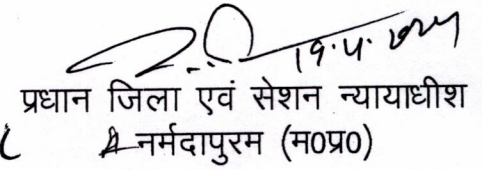 19.4.2024
प्रधान जिला एवं सेशन न्यायाधीश
नर्मदापुरम (म0प्र0)